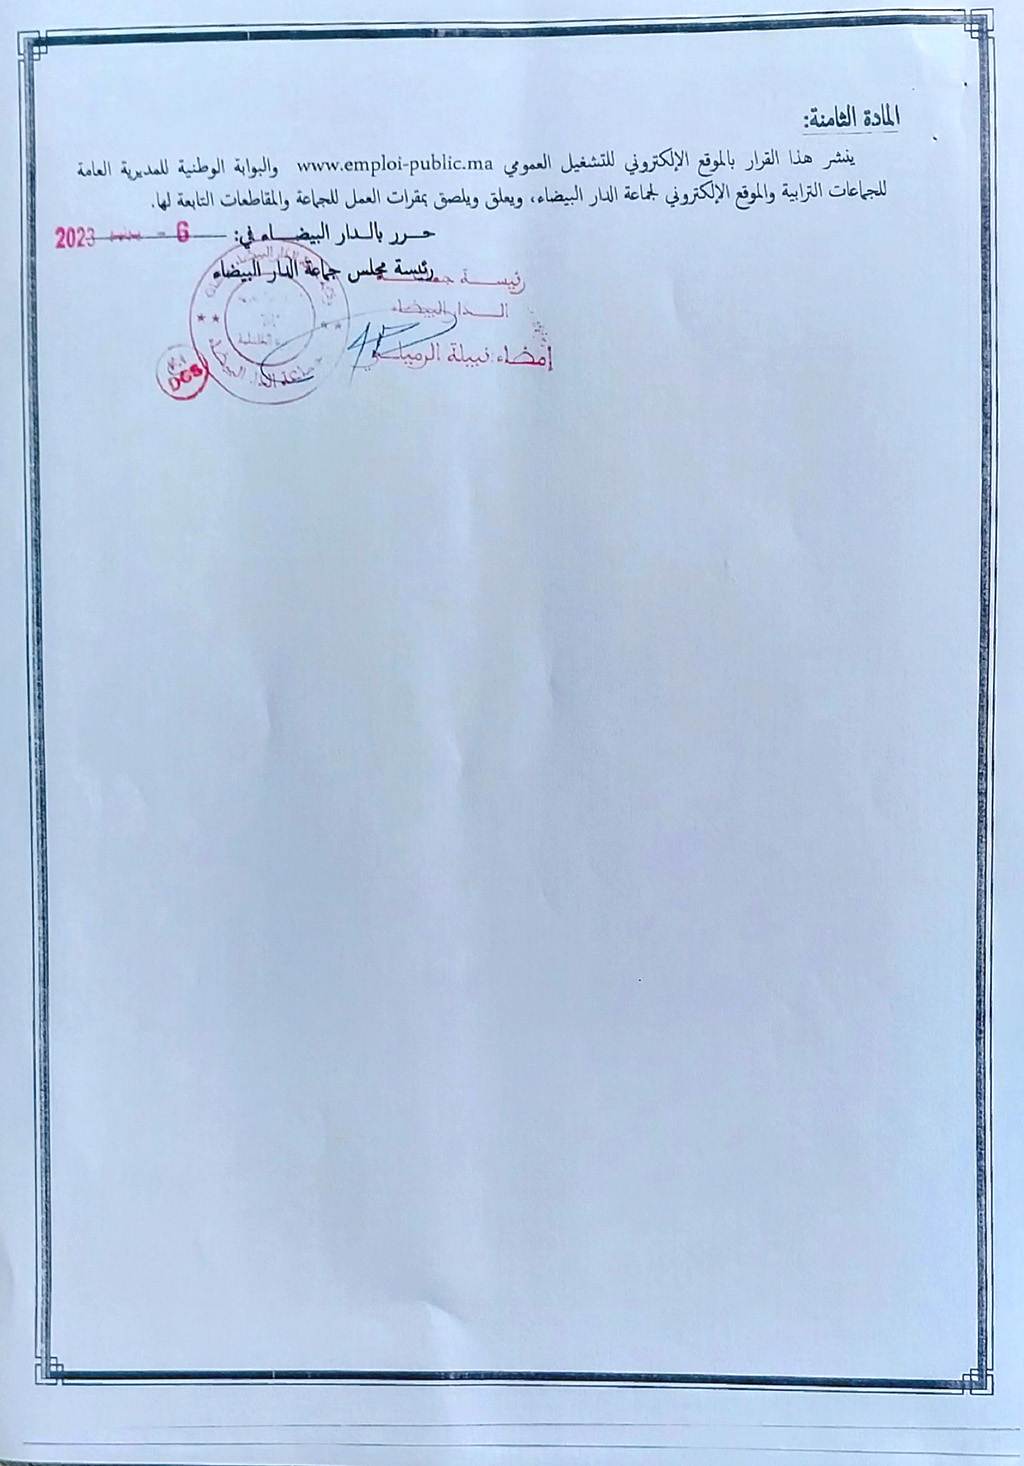 المادة الثامنة:
ينشر هذا القرار بالموقع الإلكتروني للتشغيل العمومي www.emploi-public.ma والبوابة الوطنية للمديرية العامة
للجماعات الترابية والموقع الإلكتروني لجماعة الدار البيضاء، ويعلق ويلصق بمقرات العمل للجماعة والمقاطعات التابعة لها.
حـــرر بالـدار البيضـــاء في: 6 - 2023
رئيسة مجلس جماعة الدار البيضاء
رئيســة
الــدار البيضاء
إمضاء: نبيلة الرميلـي
DGS